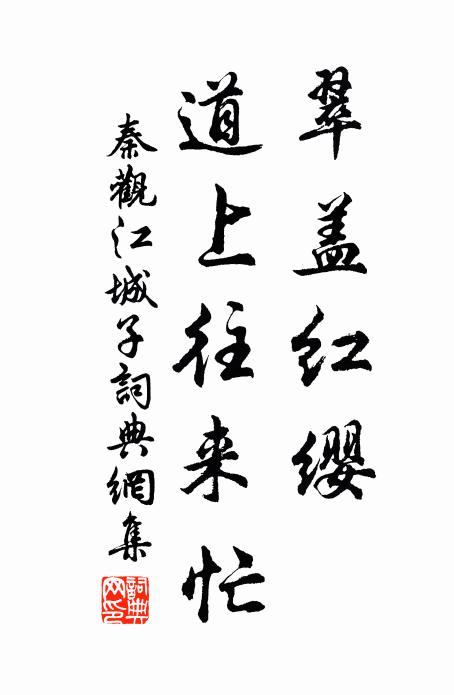 翠盖红缨
道上往来忙
秦觀江城子詞典網集
詞典网印